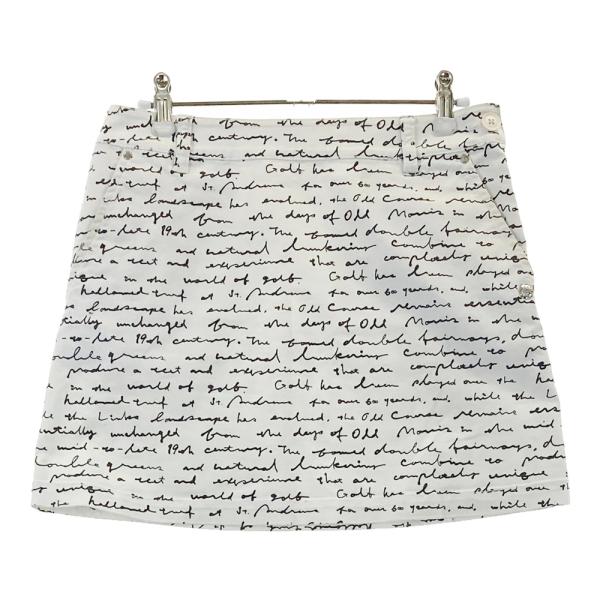 from the days of Old Morris
late 19th century. The famed double
greens and natural
world of golf. Golf has been played over
hallowed turf at St. Andrews for over 600 years, and, while
the Links landscape has evolved, the Old Course remains
unchanged from the days of Old Morris in the
-to-late 19th century. The famed double fairways,
greens and natural bunkering combine to
a test and experience that are completely
in the world of golf. Golf has been played
hallowed turf at St. Andrews for over 600 years, and, while
landscape has evolved, the Old Course remains essenti
tially unchanged from the days of Old Morris in the
-to-late 19th century. The famed double fairways, dou
ouble greens and natural bunkering combine to
produce a test and experience that are completely uniq
in the world of golf. Golf has been played over the
hallowed turf at St. Andrews for over 600 years, and, while
the Links landscape has evolved, the Old Course remains
entially unchanged from the days of Old Morris in the mid
mid-to-late 19th century. The famed double fairways, d
double greens and natural bunkering combine to produ
produce a test and experience that are completely unique
in the world of golf. Golf has been played over the
the hallowed turf at St. Andrews for over 600 years, and, while the